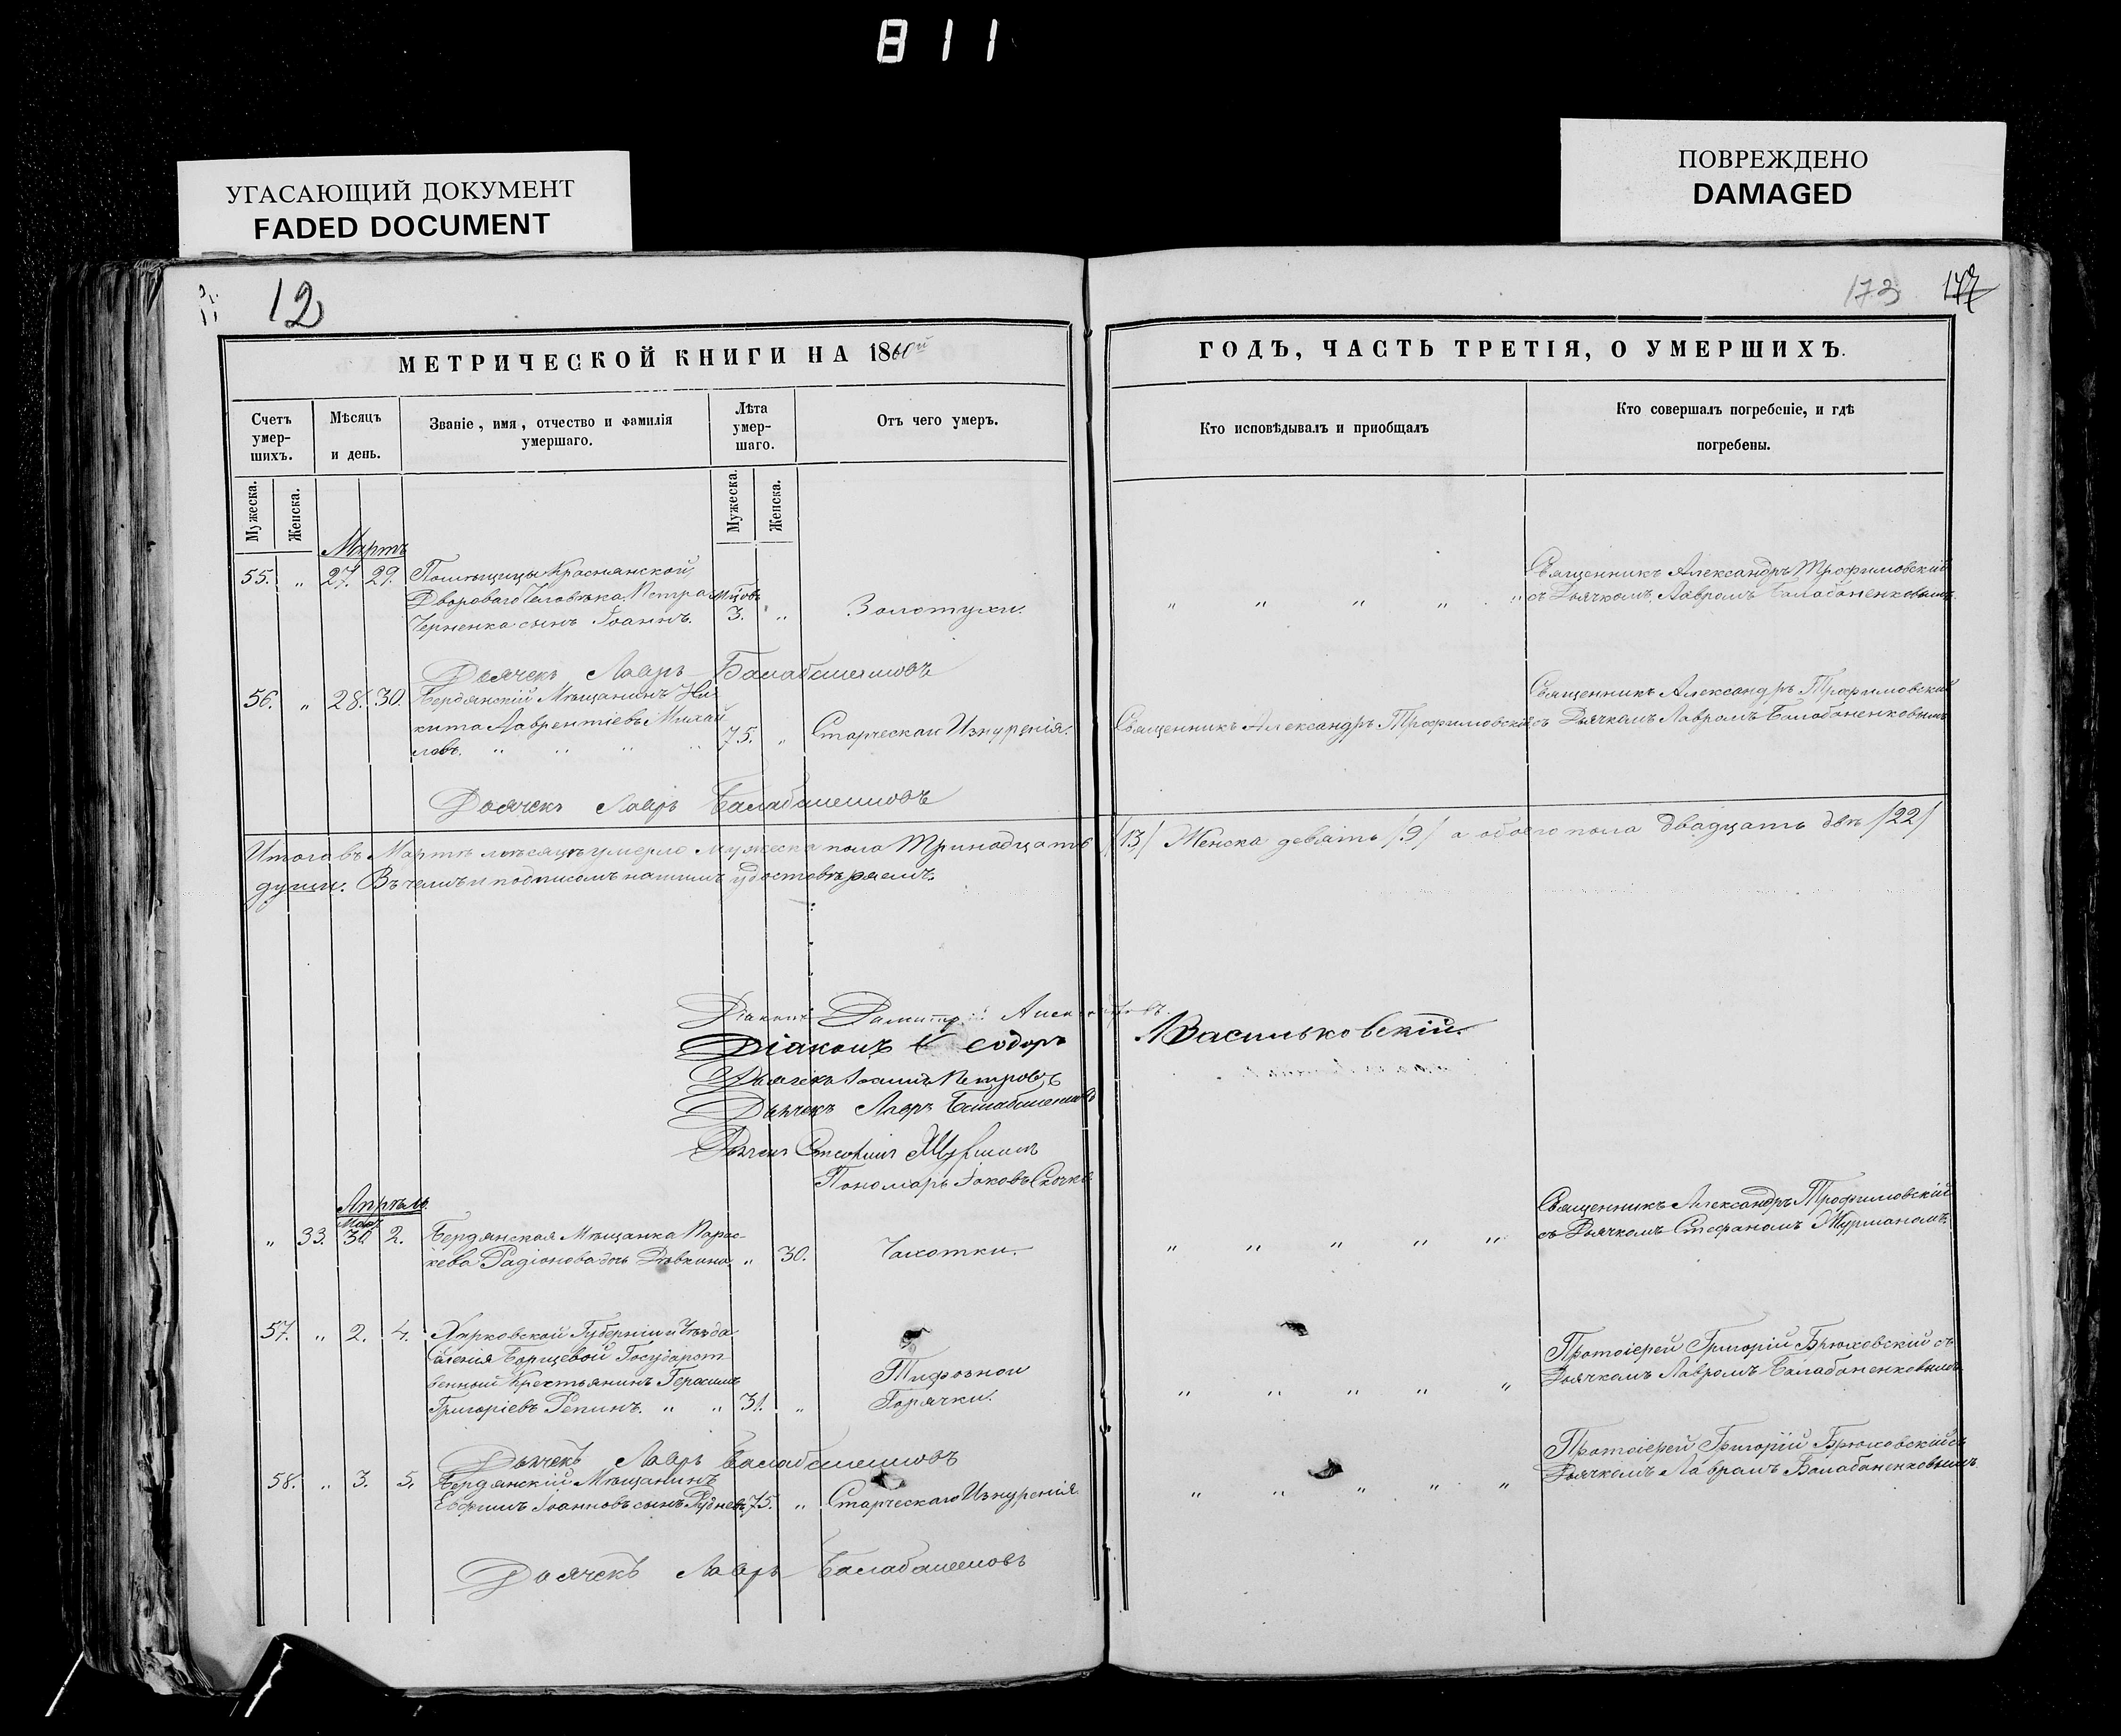 811
УГАСАЮЩИЙ ДОКУМЕНТ
FADED DOCUMENT
ПОВРЕЖДЕНО
DAMAGED
12
173
МЕТРИЧЕСКОЙ КНИГИ НА 1860й
ГОДЪ, ЧАСТЬ ТРЕТІЯ, О УМЕРШИХЪ.
Счетъ умер-шихъ.
Мѣсяцъ и день.
Званіе, имя, отчество и фамилія умершаго.
Лѣта умер-шаго.
Отъ чего умеръ.
Кто исповѣдывалъ и приобщалъ
Кто совершалъ погребеніе, и гдѣ погребены.
Мужеска.
Женска.
Мужеска.
Женска.
Мартъ
55. „ 27. 29. Помѣщицы Краснянской,
Двороваго Человѣка Петра
Черненка сынъ Іоаннъ. 3. „ Золотухи.
Священникъ Александръ Трофимовскій
съ Дьячкомъ Лавромъ Балабаненковымъ.
Дьячекъ Лавръ Балабаненковъ
56. „ 28. 30. Бердянскій Мѣщанинъ Ни-
кита Лаврентіевъ Михай-
ловъ. 75. „ Старческаго Изнуренія.
Священникъ Александръ Трофимовскій
Священникъ Александръ Трофимовскій
съ Дьячкомъ Лавромъ Балабаненковымъ
Дьячекъ Лавръ Балабаненковъ
Итого въ Мартѣ мѣсяцѣ умерло мужеска пола Тринадцать /13/ Женска девять /9/ а обоего пола двадцать двѣ /22/
души. Въ чемъ и подписомъ нашимъ удостовѣряемъ.
Діаконъ Димитрій
Діаконъ Ѳеодоръ Васильковскій.
Дьячекъ Іоаннъ Петровъ
Дьячекъ Лавръ Балабаненковъ
Дьячекъ Стефанъ Журманъ
Пономарь Іаковъ
Апрѣль.
Март.
„ 33. 30 2. Бердянская Мѣщанка Парас-
кева Радіонова дочь „ 30. Чахотки.
Священникъ Александръ Трофимовскій
съ Дьячкомъ Стефаномъ Журманомъ.
57. „ 2. 4. Харковской Губерніи и Уѣзда
Селенія Борщевой Государст-
венный Крестьянинъ Герасимъ
Григоріевъ Репинъ. „ „ 31. „ Тифозной
Горячки.
Протоіерей Григорій Брюховскій съ
Дьячкомъ Лавромъ Балабаненковымъ
Дьячекъ Лавръ Балабаненковъ
58. „ 3. 5. Бердянскій Мѣщанинъ
Евфимъ Іоанновъ сынъ Рудневъ 75. „ Старческаго Изнуренія
Протоіерей Григорій Брюховскій съ
Дьячкомъ Лавромъ Балабаненковымъ
Дьячекъ Лавръ Балабаненковъ